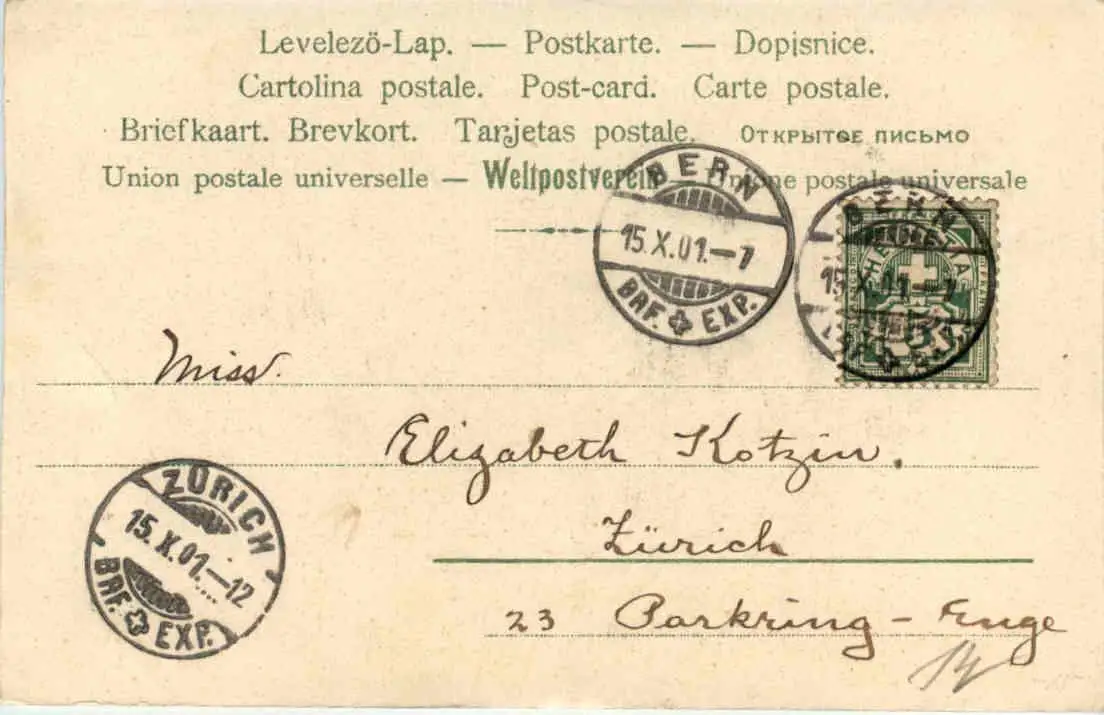 Levelező-Lap. — Postkarte. — Dopisnice.
Cartolina postale. Post-card. Carte postale.
Briefkaart. Brevkort. Tarjetas postale. Открытое письмо
Union postale universelle — Weltpostverein — Unione postale universale
BERN
15.X.01.–7
BRF. EXP.
BERN
15.X.01.–7
Miss.
Elizabeth Kotzin.
Zürich
23 Parkring - Enge
ZÜRICH
15.X.01.–12
BRF. EXP.